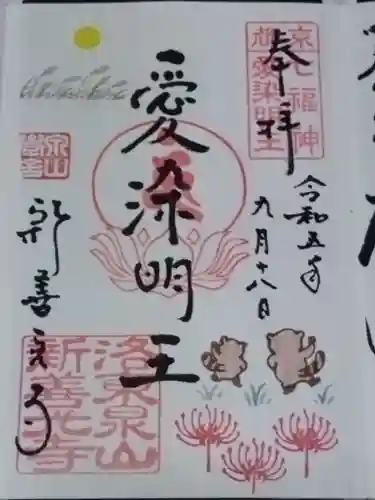 奉拝
京七福神
愛染明王
令和五年
九月十八日
愛染明王
新善光寺
洛東泉山
新善光寺